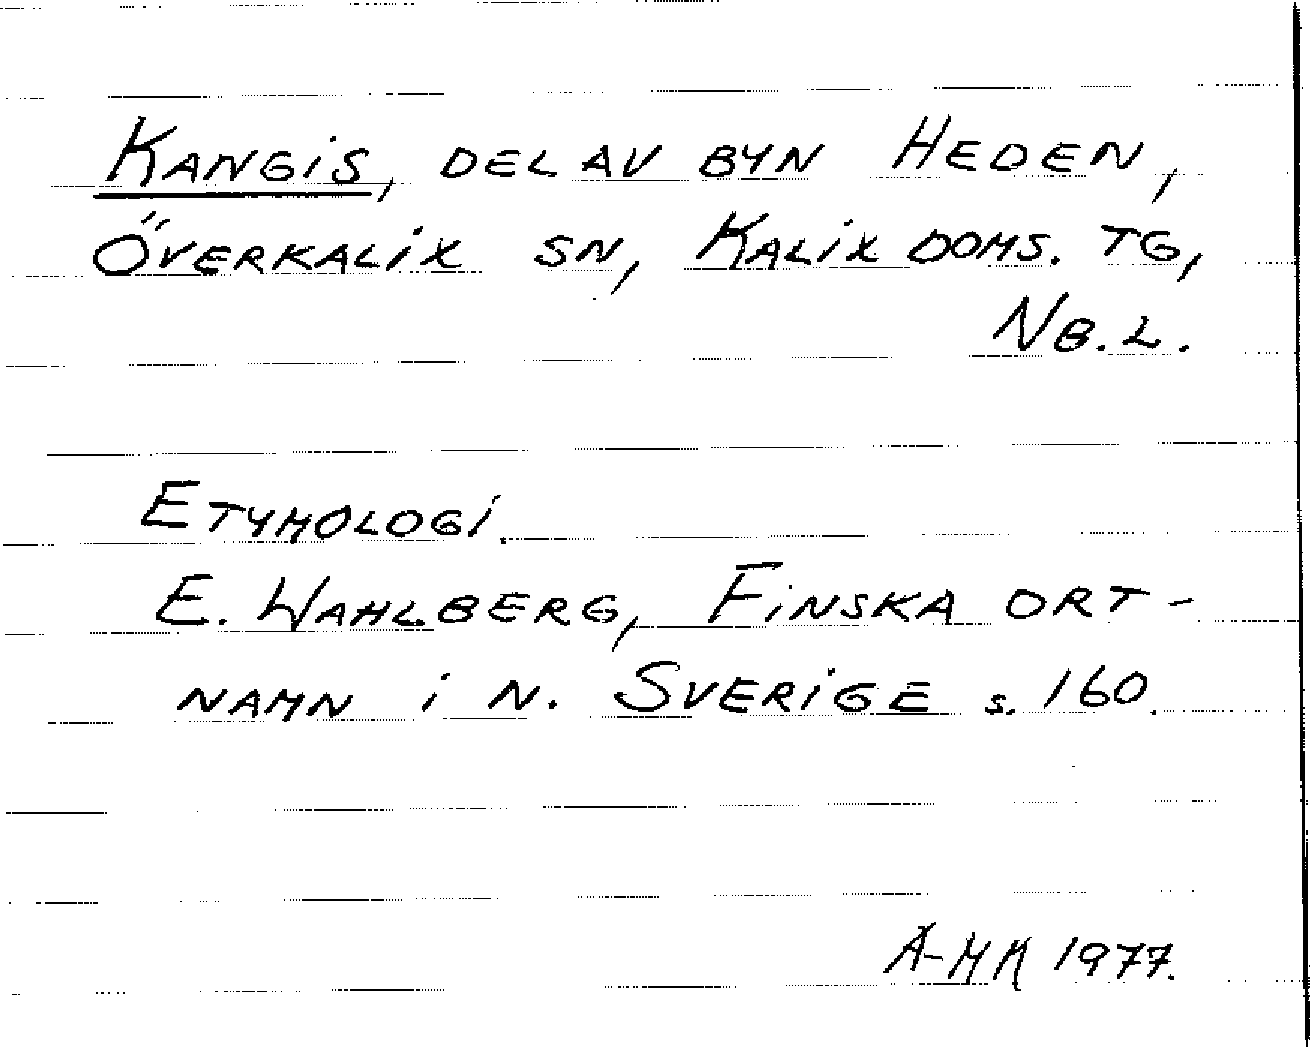 Kangis, del av byn Heden,
Överkalix sn, Kalix doms. tg,
Nb. L.
Etymologi.
E. Wahlberg, Finska ort-
namn i N. Sverige s. 160.
1977.